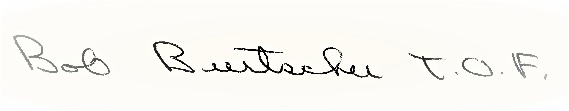 Bob Burtscher T.O.F.